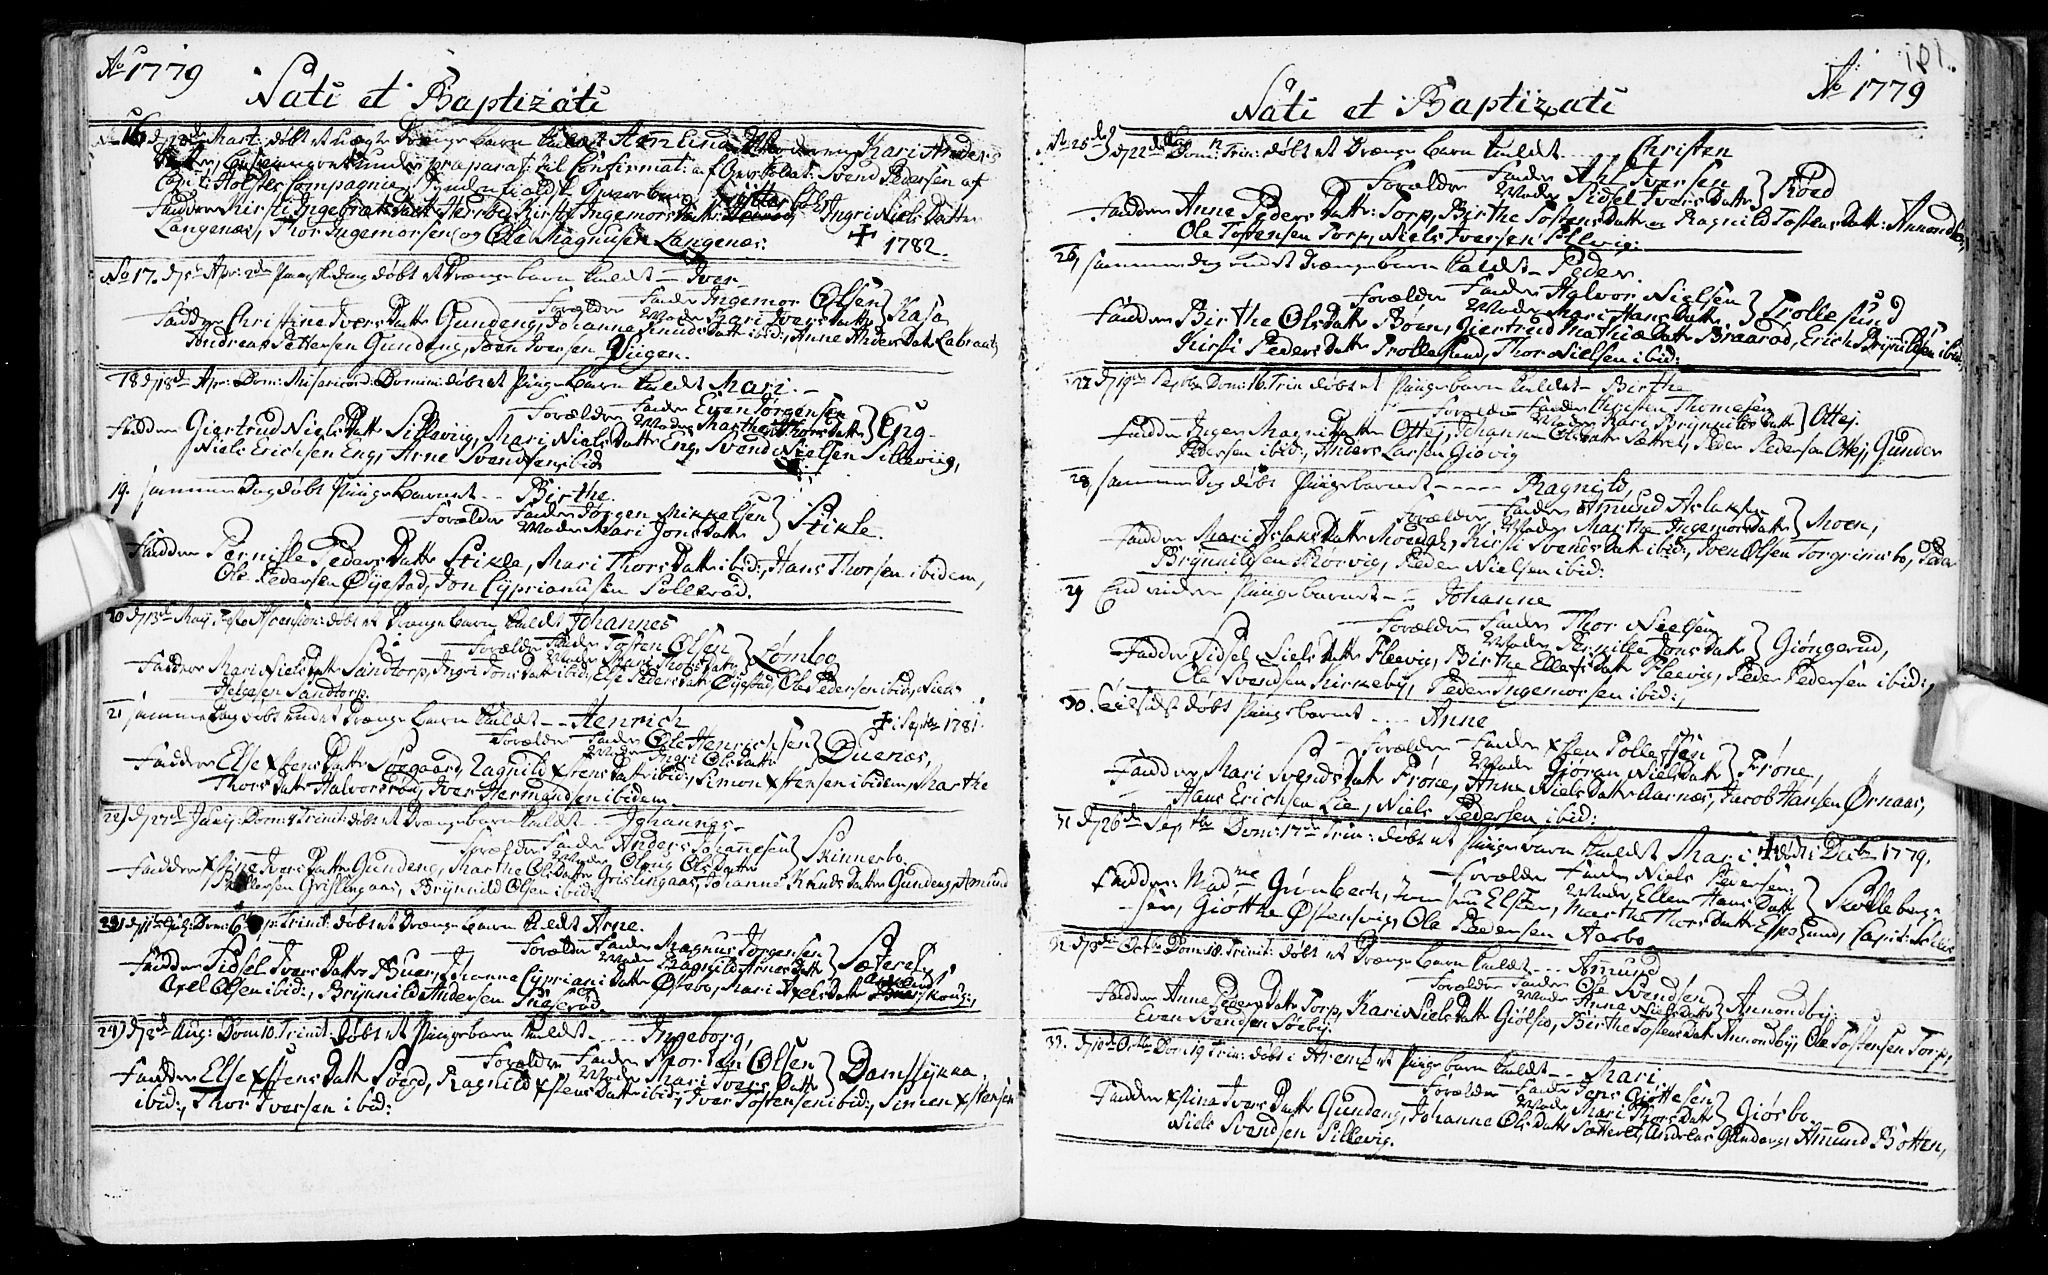 Aº 1779
Nati et Baptizati
16 Mart: døbt et Drænge barn kaldt Moderen Kari Anders
under præparat: til Confirmat: af Svend Pedersen af
Capit: Holsts Compagnie
Faddere Kirsti Herrebø, Kirsti Ingemors Datt: Ingri Niels Datter
Langenæs, Thor Ingemorsen og Ole Magnusen Langenæs: ✝ 1782.
No 17. Apr: 2den Paaskedag døbt et Drænge barn kaldt Iver
Forældre Fader Ingemor Olsen
Moder Mari Ivers Datt: } Kasa
Faddere Christine Ivers Datt: Gundeng, Johanna Knuds Datt: ibid:, Anne Anders Datt:
Andreas Pettersen Gundeng, Joen Iversen
18 d 18de Apr: Dom: Misericord: Domini døbt et Pinge barn kaldt Mari.
Forældre Fader Even Jörgensen
Moder Marthe Thors Datt: } Eng
Faddere Giertrud Niels Datt: Silleviig, Mari Niels Datt: Eng, Svend Nielsen Silleviig,
Niels Erichsen Eng, Arne Svendsen ibid
19. samme Dag døbt Pinge barnet Birthe.
Forældre Fader Jörgen Mikkelsen
Moder Mari Jons Datt: } Stikle
Faddere Pernille Peders Datt: Stikle, Mari Thors Datt: ibid:, Hans Thorsen ibidem,
Ole Pedersen Øÿestad, Jon Cyprianusen Pollerød.
20 d 13de Maij Festo Ascension: døbt et Drænge barn kaldt Johannes
Forældre Fader Tosten Olsen
Moder Mari Thors Datt: } Lømbo
Faddere Mari Niels Datt: Sandtorp, Ingri Jons Datt: ibid:, Else Peders Datt: Øÿestad, Ole Pedersen ibid:, Niels
Helgesen Sandtorp.
21 samme Dag døbt endet Drænge barn kaldt Henrich ✝ i Septbr 1781.
Forældre Fader Ole Henrichsen
Moder Ingri Ols Datt: } Duenæs,
Faddere Else Xstens Datt: Søegaard, Ragnild Xstens Datt: ibid:, Simon Xstensen ibidem, Marthe
Thors Datt: Halvorsrød, Iver Hermandsen ibidem.
22) d 27de Junij Dom: 4 Trinit: døbt et Drænge barn kaldt Johannes
Forældre Fader Anders Johannesen
Moder Oloug Ols Datter } Skinnerbo
Faddere Xstine Ivers Datt: Gundeng, Marthe Ols Datt: Grislingaas, Johanne Knuds Datt: Gundeng, Amund
Grislingaas, Brynnild Olsen ibid:
23) d 11te Julj Dom: 6 p: Trinit: døbt et Drænge barn kaldt Arne.
Forældre Fader Magnus Jörgensen
Moder Ragnild Arnes Datt: } Sæterel
Faddere Sidsel Ivers Datt: Buer, Johanne Cypriani Datt: Ostebo, Mari Axels Datt:
Axel Olsen ibid:, Brynnild Andersen
24) d 8de Aug: Dom: 10. Trinit: døbt et Pinge barn kaldt Ingeborg,
Forældre Fader Olsen
Moder Mari Ivers Datt: }
Faddere Else Xstens Datt: Søegd, Ragnild Xstens Datt: ibid:, Iver Tostensen ibid:, Simen Xstensen
ibid:, Thor Iversen ibid:
181.
Aº 1779
Nati et Baptizati
No 25 d 22de Aug Dom: 12 Trin: døbt et Drænge barn kaldt Christen
Forældre Fader Axl Iversen
Moder Sidsel Ivers Datt: } Röed
Faddere Anne Peders Datt: Torp, Birthe Tostens Datt: og Ragnild Tostens Datt: Amondbÿ,
Ole Tostensen Torp, Niels Iversen Sillevig:
26, samme dag endet Drænge barn kaldt Peder.
Forældre Fader Halvor Nielsen
Moder Mari Hans Datt: } Trollesund
Faddere Birthe Ols Datt: Böen, Giertrud Mathiæ Datt: Braaröd, Erich Brÿnildsen ibid:,
Kirsti Peders Datt: Trollesund, Thor Nielsen ibid:
27 d 19de Septbr Dom: 16. Trin døbt et Pinge barn kaldt Birthe
Forældre Fader Christen Thomesen
Moder Kari Brynnilds Datt: } Ottej.
Faddere Inger Magni Datter Ottej, Johanne Ols Datt: Sættrel, Peder Pedersen Ottej, Gunder
Pedersen ibid:, Anders Larsen Giövig
28, samme Dag døbt Pinge barnet Ragnild
Forældre Fader Amund Aslaksen
Moder Marthe Ingemors Datt: } Moen,
Faddere Mari Aslaks Datt: Moen, Kirsti Svends Datt: ibid:, Iven Olsen Torgrimsbo, Peder
Brÿnnildsen Skörvig, Peder Nielsen ibid:
29 End videre Pinge barnet Johanne
Forældre Fader Thor Nielsen
Moder Pernille Jons Datt: } Giöngerud,
Faddere Sidsel Niels Datt: Pleevig, Birthe Ellefs Datt: Pleevig, Peder Pedersen ibid:,
Ole Svendsen Kirkebÿ, Peder Ingemorsen ibid:,
30. Til sidst døbt Pinge barnet Anne
Forældre Fader Xsten Pollefsen
Moder Giöran Niels Datt: } Fröne,
Faddere Mari Svends Datt: Fröne, Anne Niels Datt: Aarnæs, Jacob Hansen Ørnaas,
Hans Erichsen Lie, Niels Pedersen ibid:
31 d 26de Septbr Dom: 17de Trin: døbt et Pinge barn kaldet Mari ✝ död i Decbr 1779.
Forældre Fader Niels Pedersen
Moder Ellen Hans Datt: } Skolleberg
Faddere: Madme Grönbech, Jomfru Elster, Marthe Thors Datt: Espelund, Capit:
Giötthe Østensvig, Ole Pedersen Aasebo
32 d 3de Octbr Dom: 18. Trinit: døbt et Drænge barn kaldt Amund
Forældre Fader Ole Svendsen
Moder Anne Niels Datt: } Amondbÿ:
Faddere Anne Peders Datt: Torp, Kari Niels Datt: Giölsö, Birthe Tostens Datt: Amondbÿ, Ole Tostensen Torp,
Even Svendsen Söebÿ.
33. d 10de Octbr Dom: 19 Trin: døbt i Aremk et Pinge barn kaldt Mari
Forældre Fader Jens Giöttesen
Moder Mari Thors Datt: } Giösbo,
Faddere Xstina Ivers Datt: Gundeng, Johanne Ols Datt: Sætterel, Andreas Gundeng, Amund Botten,
Niels Svendsen Sillevig.